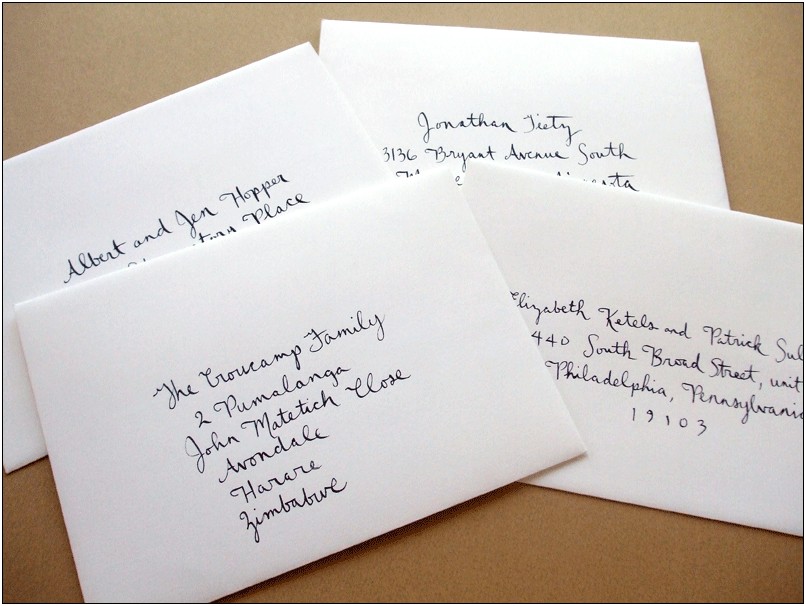 Jonathan Tiety
3136 Bryant Avenue South
Albert and Jen Hopper
Place
The Croucamp Family
2 Pumalanga
John Matetich Close
Avondale
Harare
Zimbabwe
Elizabeth Ketels and Patrick Sul
440 South Broad Street, unit
Philadelphia, Pennsylvani
19103